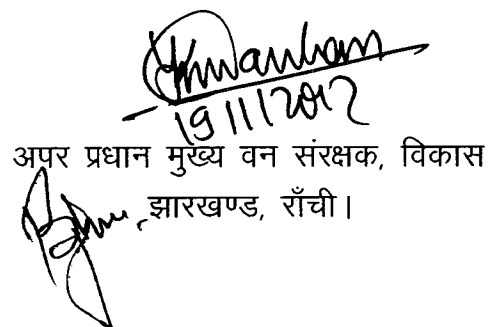 19/11/2012
अपर प्रधान मुख्य वन संरक्षक, विकास
झारखण्ड, राँची।